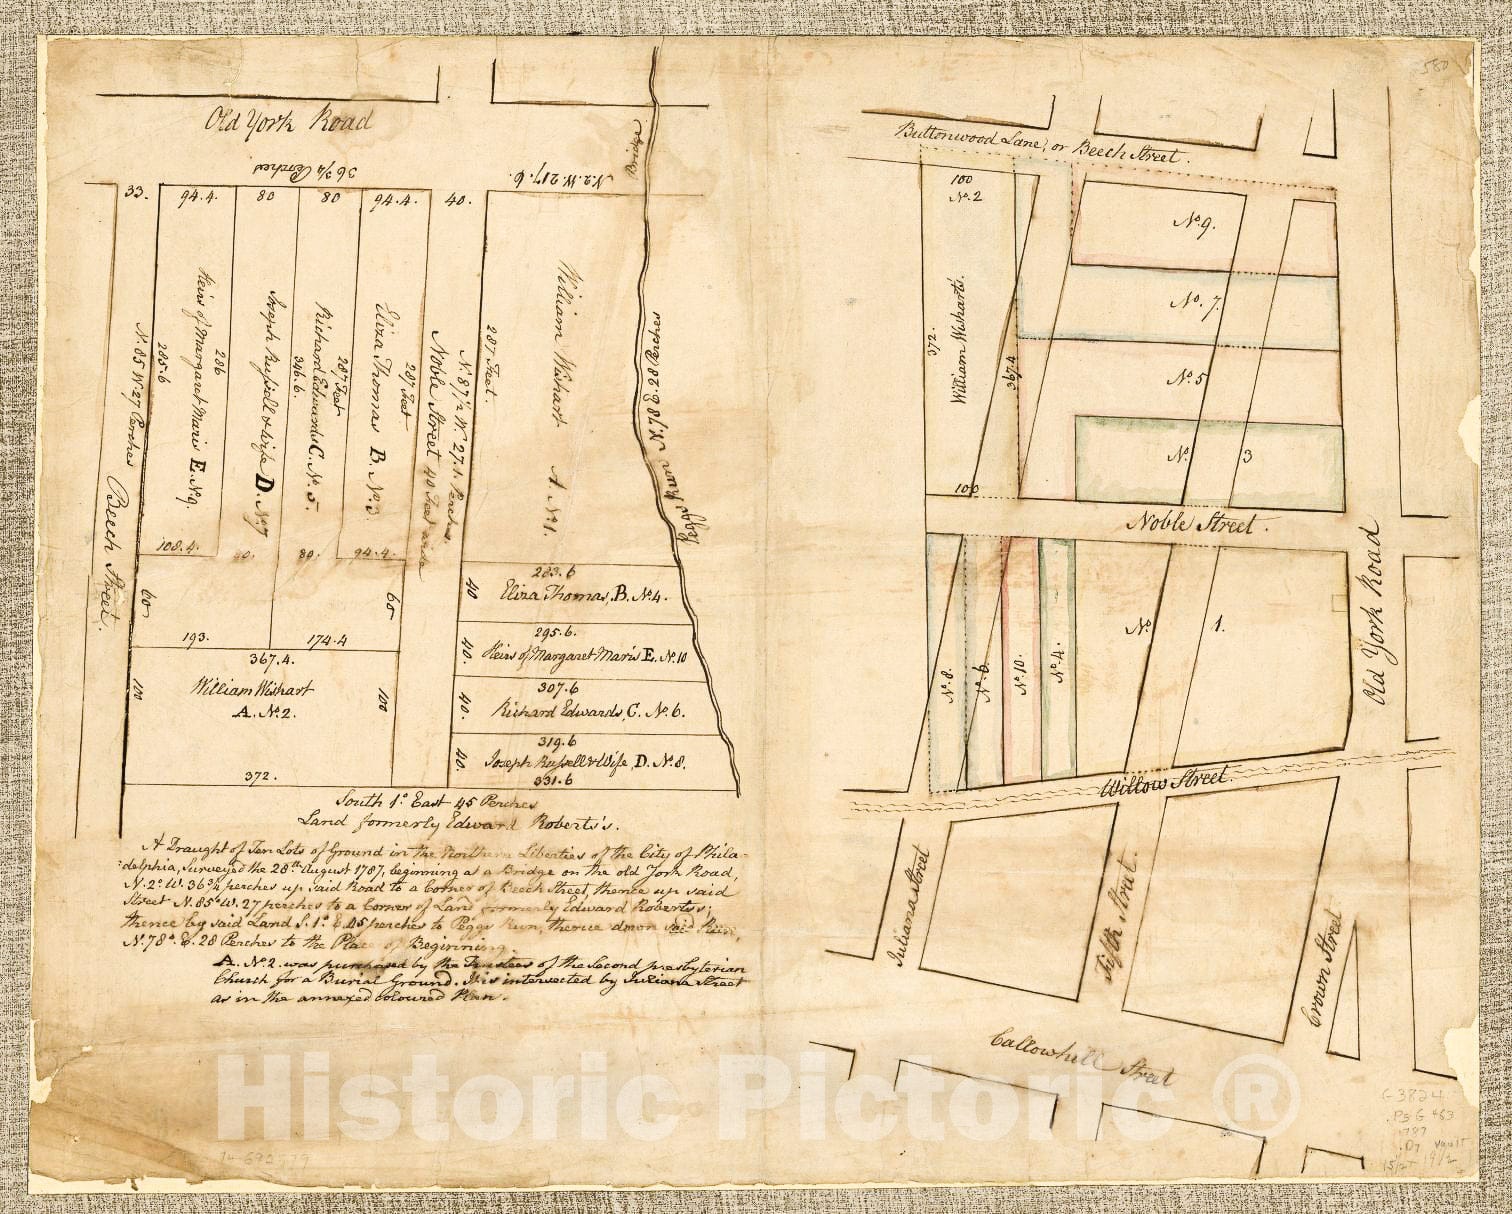 Old York Road
36 3/4 Perches
N.2.W. 217.6.
Bridge
33.
94.4.
80
80
94.4.
40.
N. 85 W. 27 Perches
Beech Street.
285.6
Heirs of Margaret Maris E. No. 9.
286
Joseph Russell & Wife D. No. 7
Richard Edwards C. No. 5.
346.6.
287 Feet
Eliza Thomas B. No. 3
287 Feet
Noble Street 40 Feet wide
N. 87 1/2 W. 27.1. Perches.
287 Feet.
William Wishart A No. 1.
Peggs Run N. 78 E. 28 Perches
108.4.
80.
80.
94.4.
60
60
193.
174.4
367.4.
William Wishart
A. No. 2.
100
100
372.
283.6
40
Eliza Thomas, B. No. 4.
295.6.
40.
Heirs of Margaret Maris E. No. 10
307.6
40.
Richard Edwards, C. No. 6.
319.6
40.
Joseph Russell & Wife, D. No. 8.
331.6
South 1° East 45 Perches
Land formerly Edward Roberts's.
A Draught of Ten Lots of Ground in the Northern Liberties of the City of Phila-
:delphia, Surveyed the 28th August 1787, beginning at a Bridge on the old York Road,
N. 2° W. 36 3/4 perches up said Road to a Corner of Beech Street, thence up said
Street N. 85° W. 27 perches to a Corner of Land formerly Edward Roberts's;
thence by said Land S. 1° E. 45 perches to Peggs Run, thence down said Run,
N. 78° E. 28 Perches to the Place of Beginning.
A. No. 2. was purchased by the Trustees of the Second presbyterian
Church for a Burial Ground. It is intersected by Juliana Street
as in the annexed coloured Plan.
580
Buttonwood Lane, or Beech Street.
100
No. 2
372.
William Wishart's.
367.4
100
No. 9.
No. 7.
No. 5
No. 3
Noble Street.
No. 8.
No. 6.
No. 10.
No. 4.
No. 1.
Old York Road
Willow Street.
Juliana Street
Fifth Street.
Crown Street
Callowhill Street
Historic Pictoric ®
74-692779
G3824
.P5G463
1787
.D7
vault